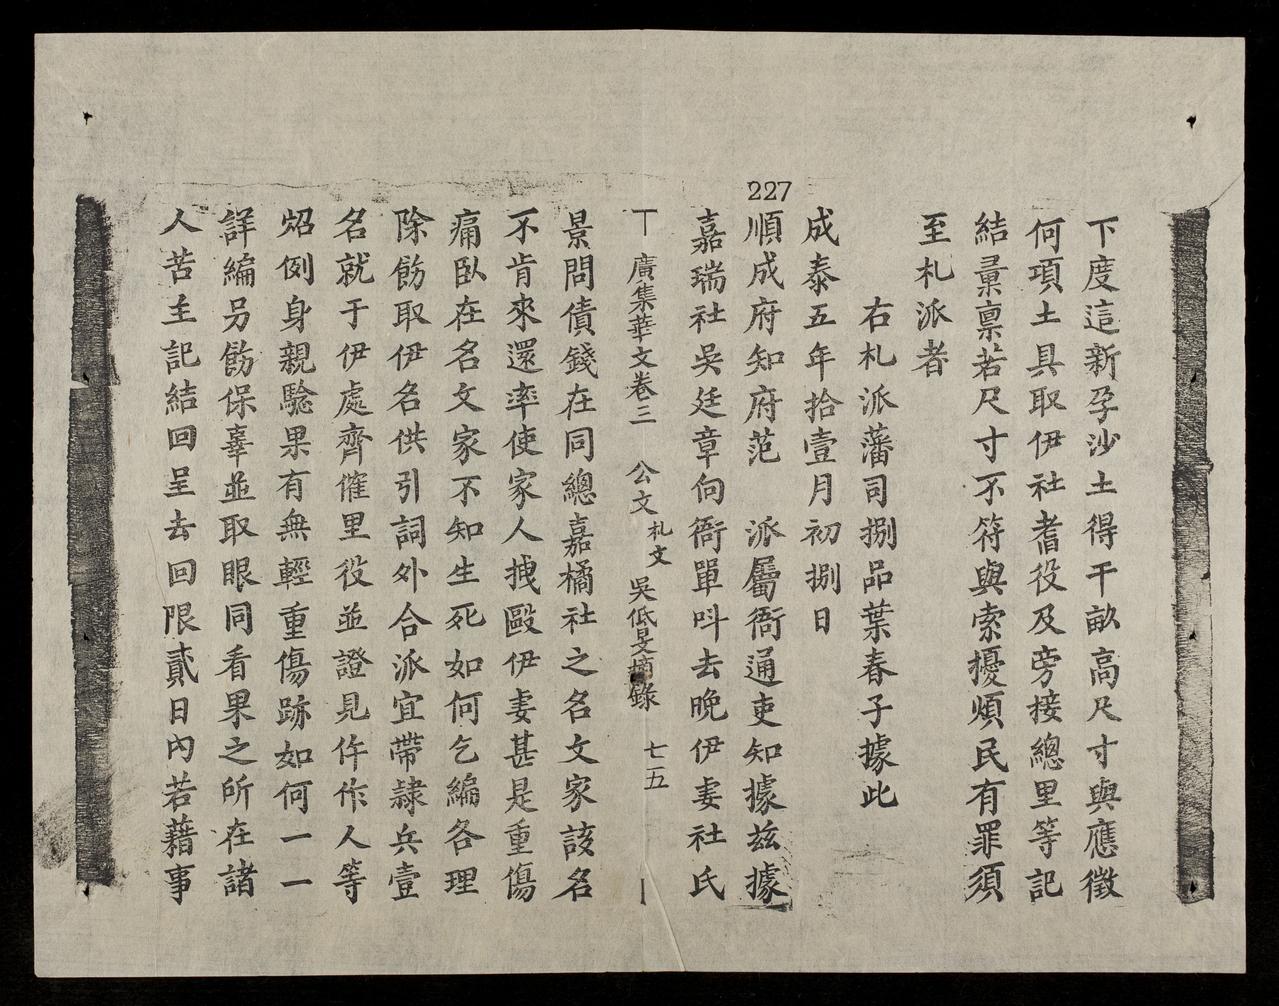 下度這新孕沙土得干畝高尺寸與應徵
何項土具取伊社耆役及旁接總里等記
結彙稟若尺寸不符與索擾煩民有罪須
至札派者
右札派藩司捌品葉春子據此
成泰五年拾壹月初捌日
227
順成府知府范　派屬衙通吏知據茲據
嘉瑞社吳廷章向衙單呌去晚伊妻社氏
廣集華文卷三　公文　札文　吳低旻摘錄　七五
景問債錢在同總嘉橘社之名文家該名
不肯來還率使家人拽毆伊妻甚是重傷
痛臥在名文家不知生死如何乞編各理
除飭取伊名供引詞外合派宜帶隸兵壹
名就于伊處齊催里役並證見仵作人等
炤例身親驗果有無輕重傷跡如何一一
詳編另飭保辜並取眼同看果之所在諸
人苦主記結回呈去回限貳日內若藉事